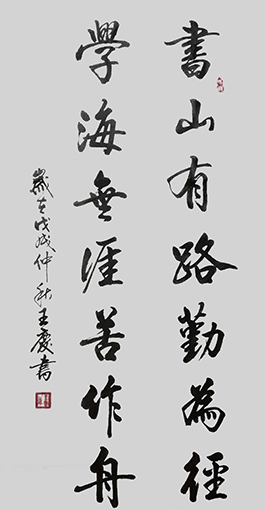 書山有路勤為徑
學海無涯善作舟
歲在戊戌仲秋王慶書